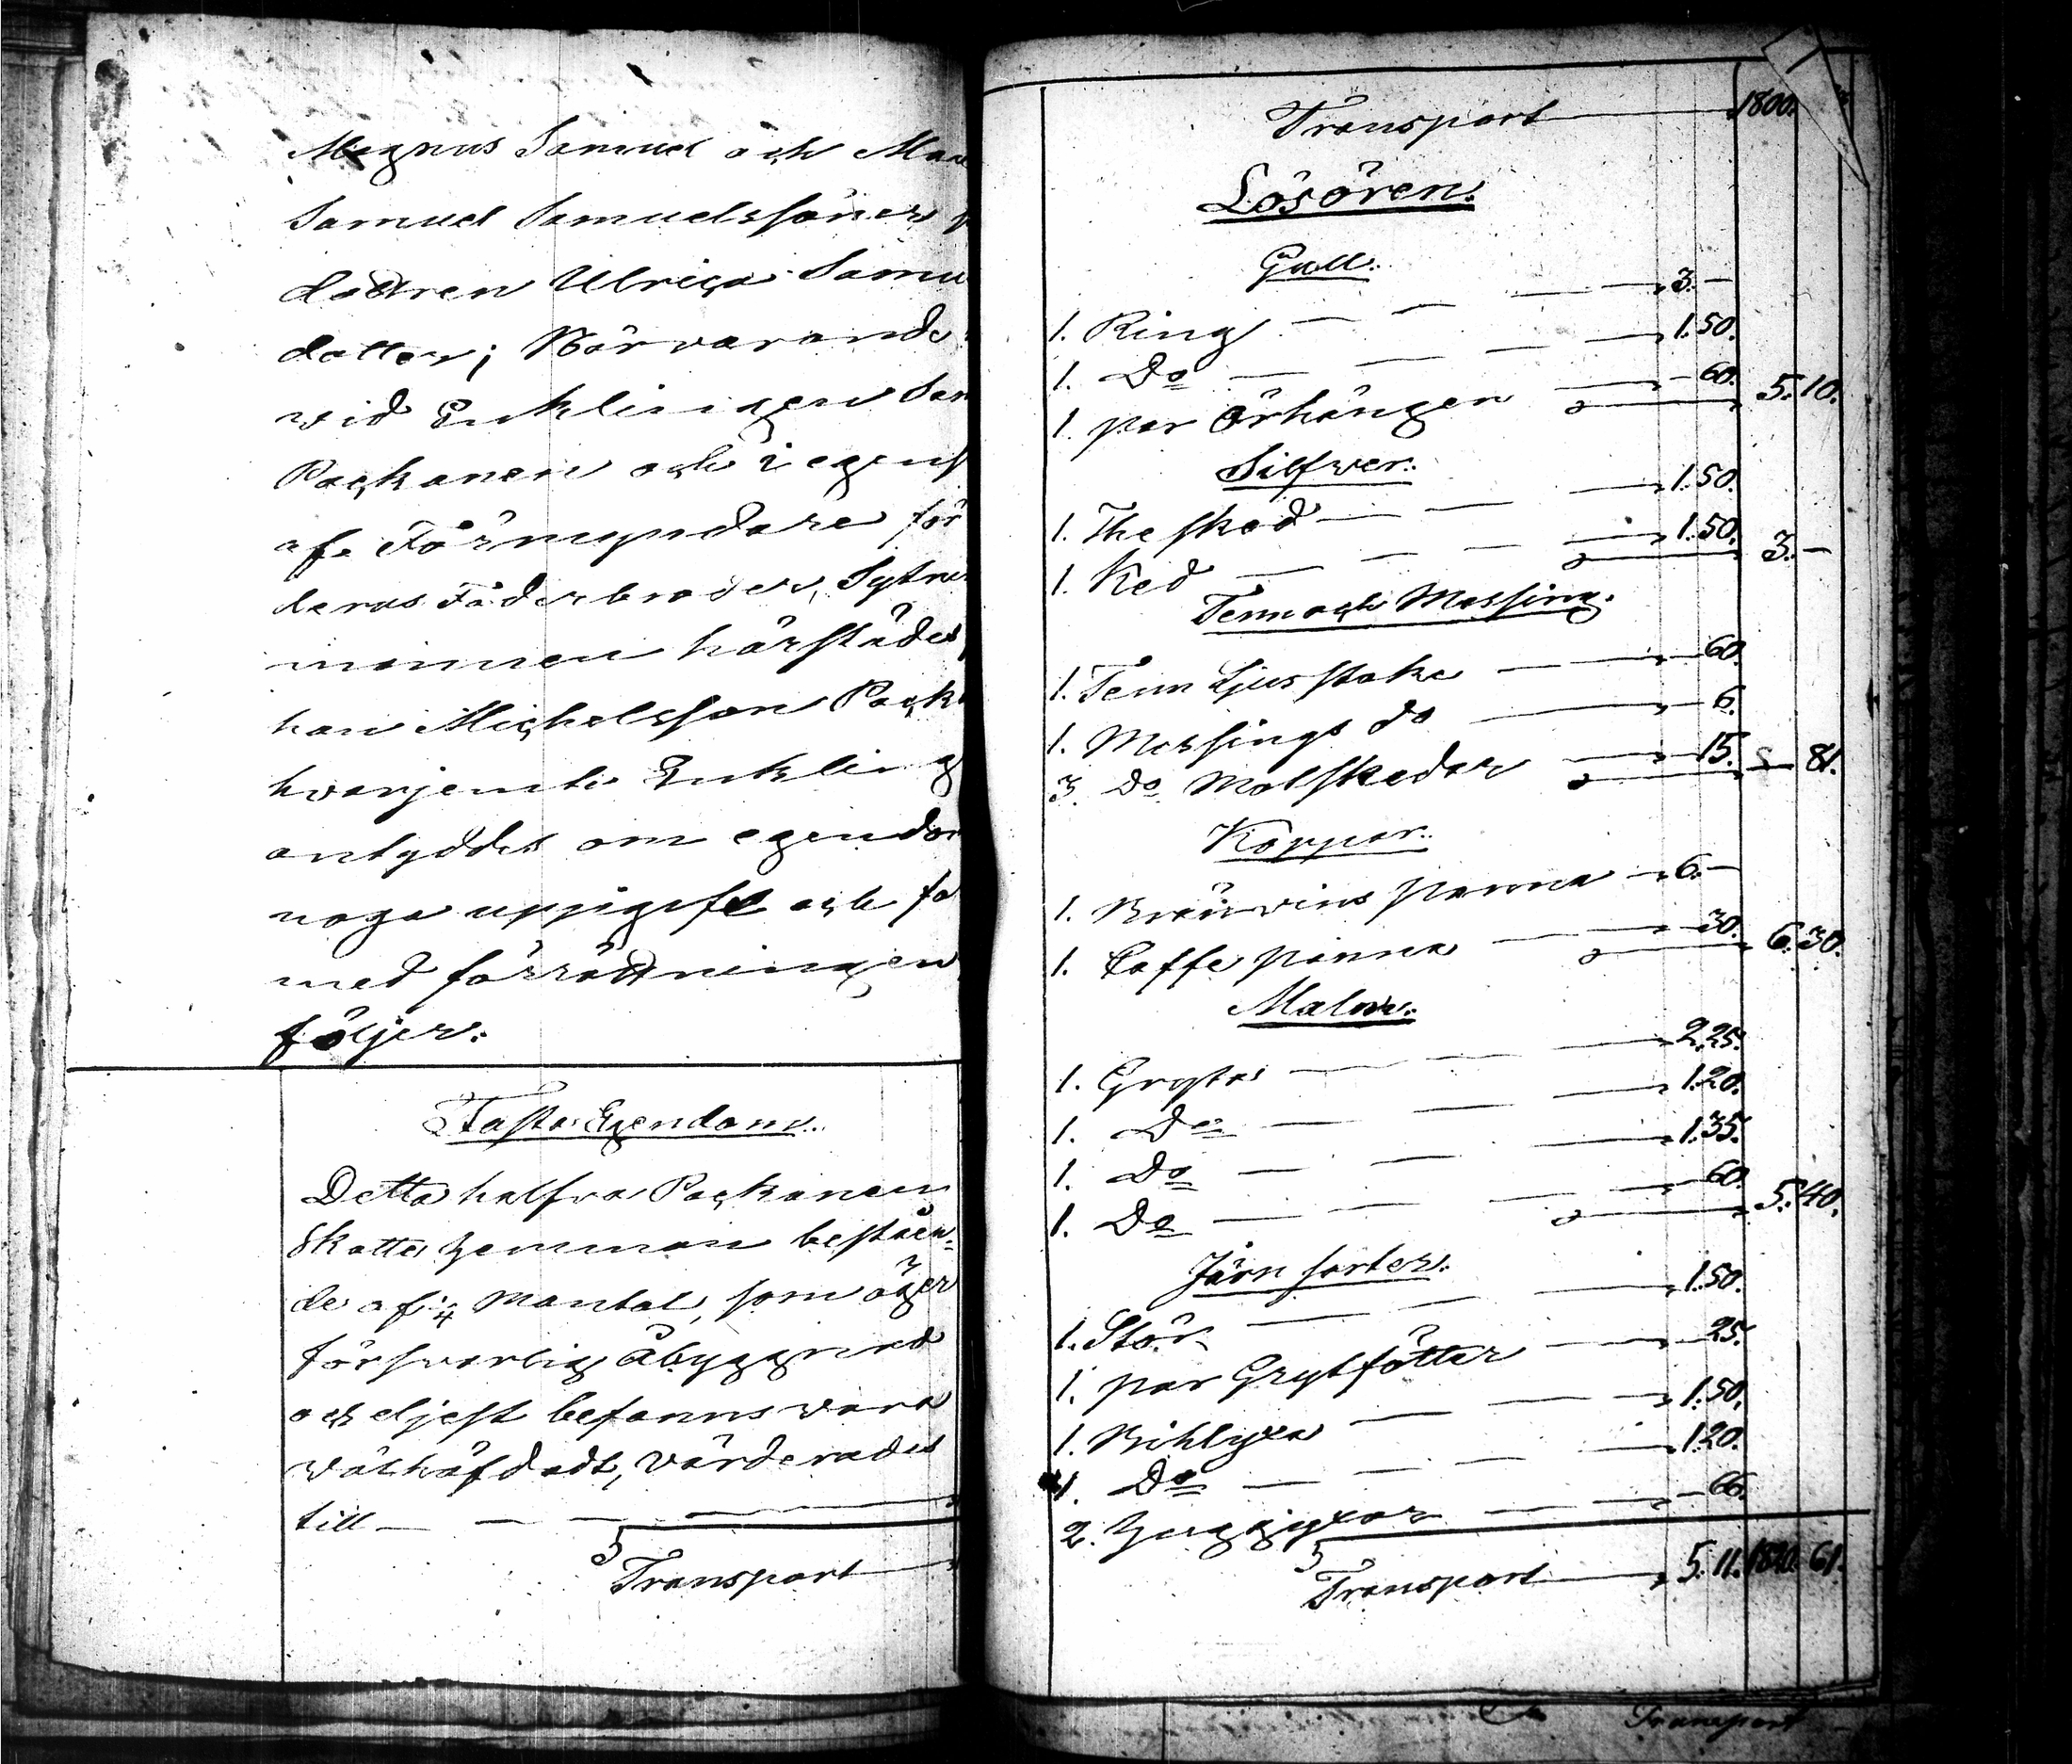 Magnus Samuel och
Samuel Samuelssöner
dottren Ulrica Samu
dotter; Närvarande
wid Enklingen Sam
Packanen och i egens
af Förmyndare för
deras Faderbroder, Sytni
mannen härstädes,
han Michelsson Pack
hvarjemte Enkling
antyddes om egendom
noga uppgift och fo
med förrättningen
följer:
Fasta Egendom.
Detta halfva Packanen
Skatte hemman beståen-
de af 1/4 Mantal, som äger
försvarlig åbyggnad
och eljest befanns vara
välhäfdadt, värderades
till
Transport
Transport 1800.
Lösören.
Gull.
1. Ring 3.—
1. Do 1.50.
1. par Örhängen 60. 5.10.
Silfwer.
1. The sked 1.50.
1. Ked 1.50. 3.—
Tenn och Messing.
1. Tenn Ljusstake 60.
1. Messings do 6.
3. Do Matskedar 15. — 81.
Koppar.
1. Bränvins panna 6.—
1. Caffe panna 30. 6.30.
Malm.
1. Gryta 2.25.
1. Do 1.20.
1. Do 1.35.
1. Do 60. 5.40.
Järn sorter.
1. Stör 1.50.
1. par Grytfötter 25.
1. Bihlyxa 1.50.
1. Do 1.20.
2. Huggyxor 66.
Transport 5.11. 1820. 61.
Transport